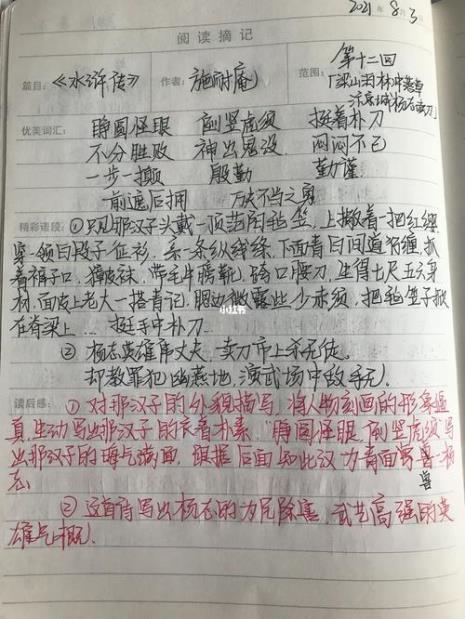 2021年8月3日
阅读摘记
篇目:《水浒传》 作者:施耐庵 范围:第十二回
「梁山泊林冲落草
汴京城杨志卖刀」
优美词汇: 睁圆怪眼 剔竖虎须 挺着朴刀
不分胜败 神出鬼没 闷闷不已
一步一攧 殷勤 勤谨
前遮后拥 万夫不当之勇
精彩语段:①只见那汉子头戴一顶范阳毡笠,上撒着一把红缨
穿一领白段子征衫,系一条纵线绦,下面青白间道行缠,抓
着裤子口,獐皮袜,带毛牛膀靴,跨口腰刀,生得七尺五六身
材,面皮上老大一搭青记,腮边微露些少赤须,把毡笠子掀
在脊梁上……挺手中朴刀…
小红书
②杨志英雄伟丈夫,卖刀市上杀无徒。
却教罪犯幽燕地,演武场中敌手无。
读后感: ①对那汉子的外貌描写,将人物刻画的形象逼
真,生动写出那汉子的衣着朴素,"睁圆怪眼,剔竖虎须"写
出那汉子的 ,根据后面知此汉为青面兽—杨
志
兽
②这首诗写出杨志的为民除害,武艺高强的英
雄气概。